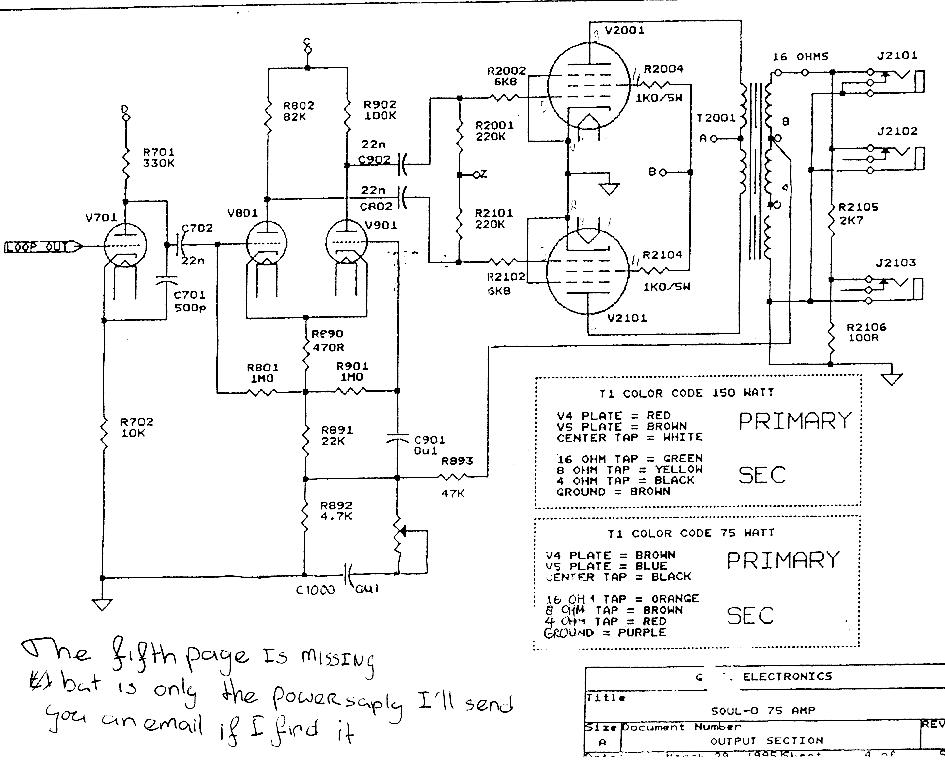 C
V2001
16 OHMS
J2101
D
R802
82K
R902
100K
R2002
6K8
R2004
1K0/5W
T2001
R701
330K
22n
C902
R2001
220K
A
8
J2102
22n
C802
Z
B
4
V701
C702
22n
V801
V901
R2101
220K
R2105
2K7
LOOP OUT
C701
500p
R2102
6K8
R2104
1K0/5W
J2103
V2101
R890
470R
R2106
100R
R801
1M0
R901
1M0
R702
10K
R891
22K
C901
0u1
R893
47K
R892
4.7K
C1000
0u1
T1 COLOR CODE 150 WATT
V4 PLATE = RED
V5 PLATE = BROWN
CENTER TAP = WHITE
PRIMARY
16 OHM TAP = GREEN
8 OHM TAP = YELLOW
4 OHM TAP = BLACK
GROUND = BROWN
SEC
T1 COLOR CODE 75 WATT
V4 PLATE = BROWN
V5 PLATE = BLUE
CENTER TAP = BLACK
PRIMARY
16 OHM TAP = ORANGE
8 OHM TAP = BROWN
4 OHM TAP = RED
GROUND = PURPLE
SEC
The fifth page Is missing
but is only the powersaply I'll send
you an email if I find it
ELECTRONICS
Title
SOUL-O 75 AMP
Size Document Number
REV
A
OUTPUT SECTION